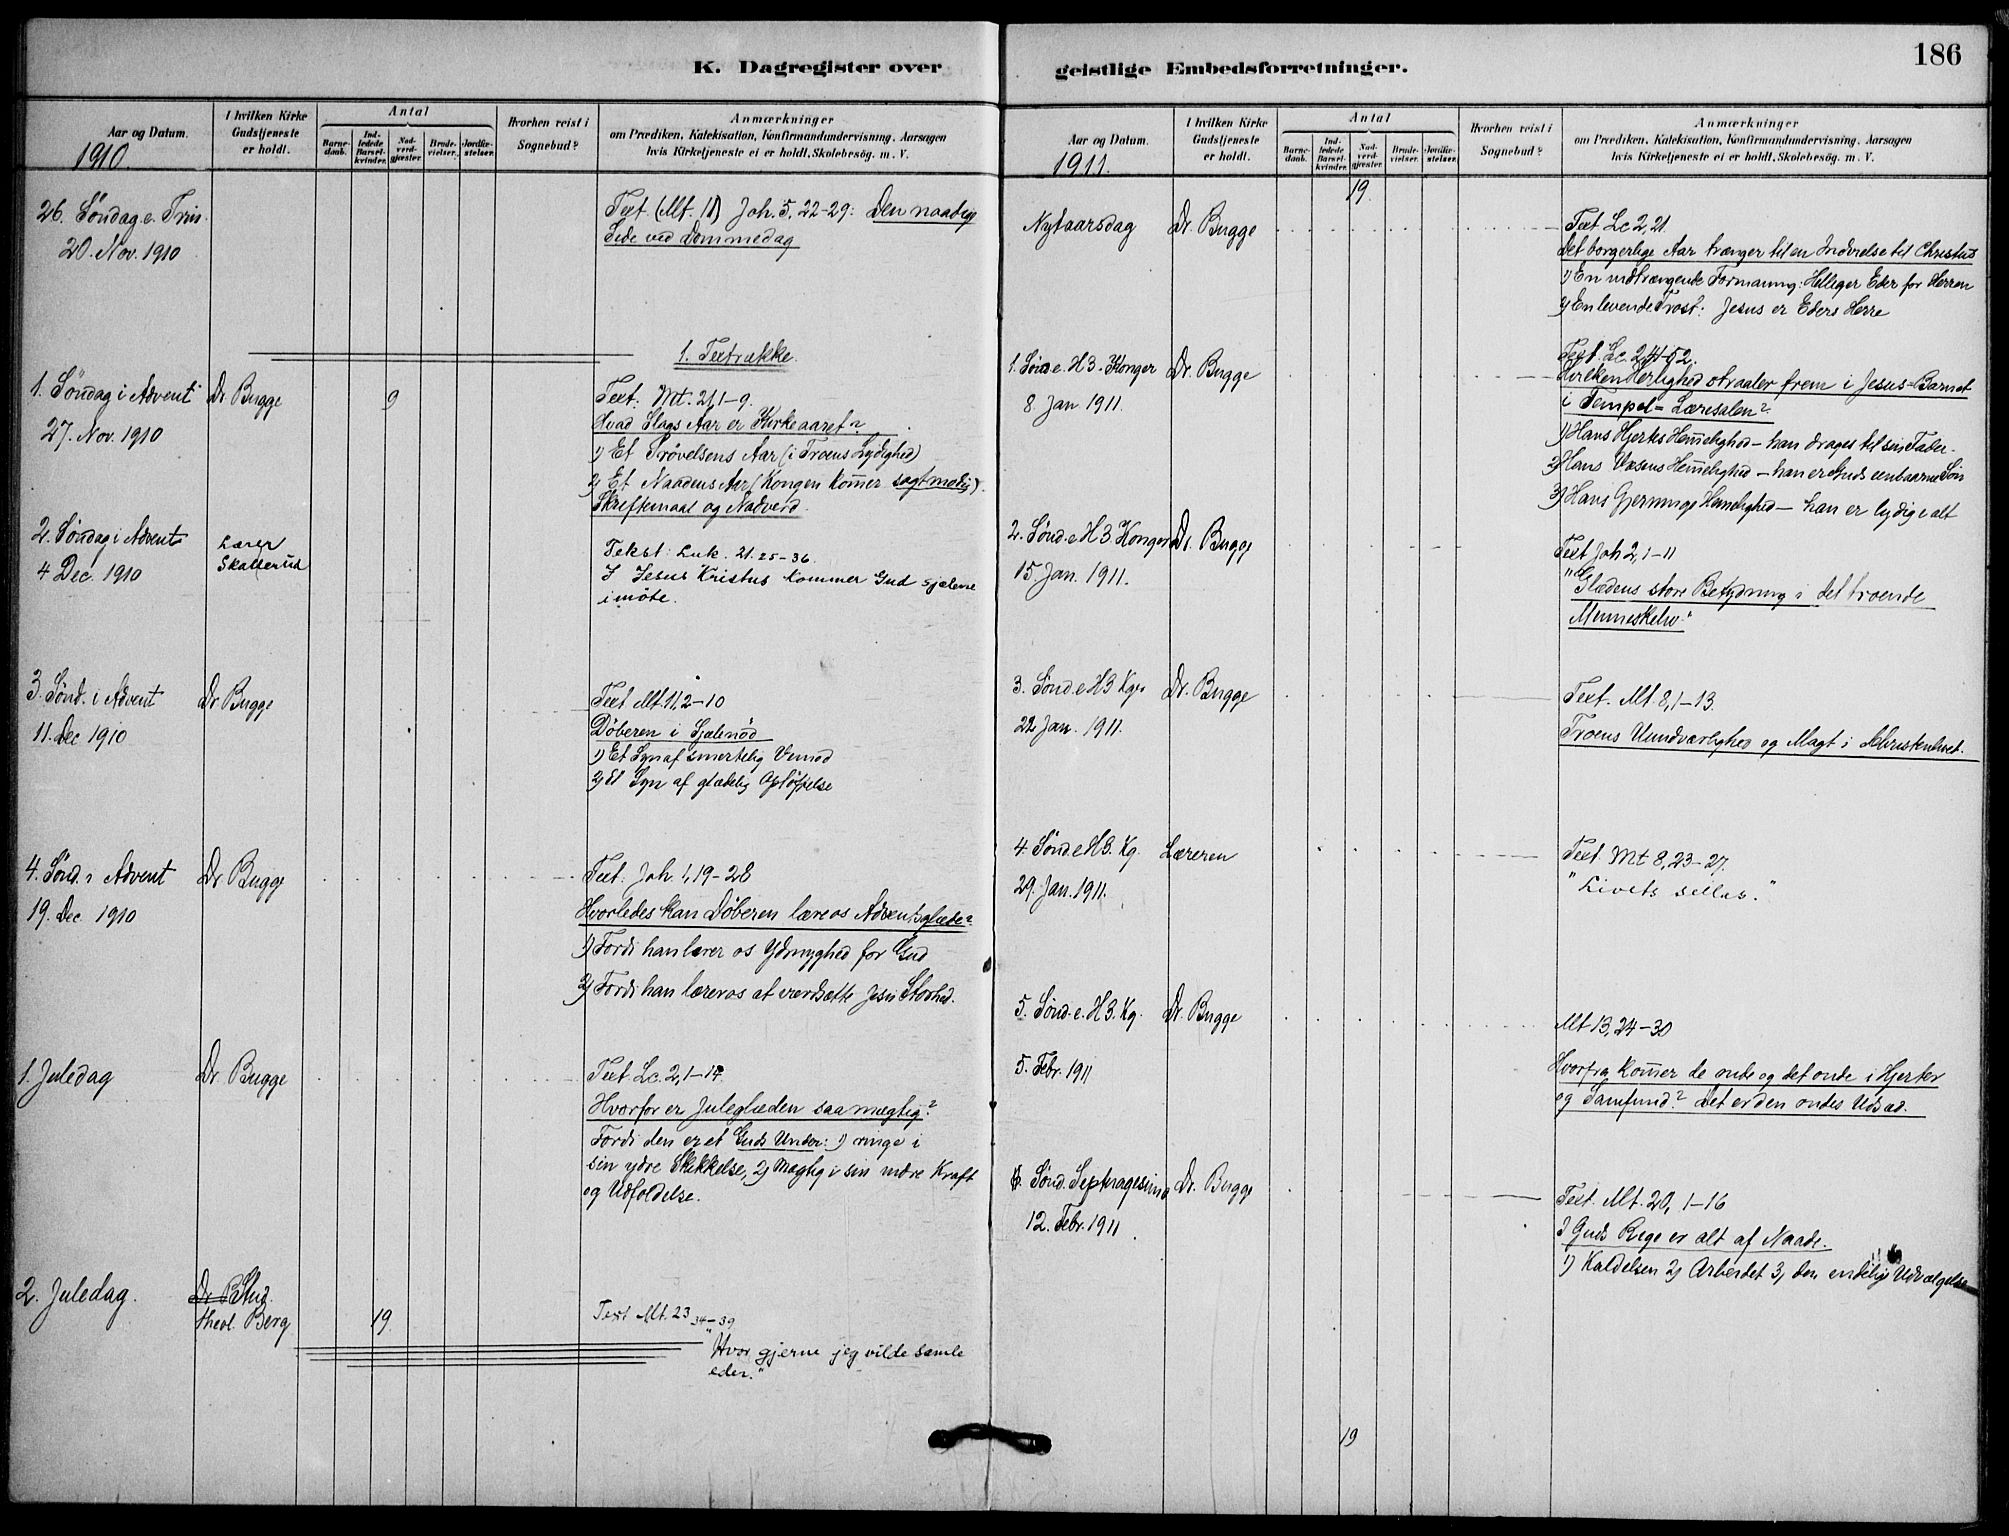 K. Dagregister over
Aar og Datum.
1910.
I hvilken Kirke
Gudstjeneste
er holdt.
Antal
Barne-
daab.
Ind-
ledede
Barsel-
kvinder.
Nad-
verd-
gjæster.
Brude-
vielser.
Jordfæ-
stelser.
Hvorhen reist i
Sognebud?
Anmærkninger
om Prædiken, Katekisation, Konfirmandundervisning, Aarsagen
hvis Kirketjeneste ei er holdt, Skolebesög. m. V.
26. Søndag e. Trin.
20. Nov. 1910
Text (Mt. 11) Joh. 5, 22-29: Den naadige
Side ved Dommedag
1. Textrække.
1. Søndag i Advent
27. Nov. 1910
Dr Bugge
9
Text. Mt. 21,1-9.
Hvad Slags Aar er Kirkeaaret?
1) Et Prøvelsens Aar (i Troens Lydighed)
2) Et Naadens Aar (Kongen kom̄er sagtmodig).
Skriftemaal og Nadverd.
2. Søndag i Advent
4 Dec. 1910
Lærer
Skatterud
Tekst: Luk. 21. 25-36.
I Jesus Kristus kommer Gud sjælene
i møte.
3. Sønd. i Advent
11. Dec 1910
Dr Bugge
Text Mt. 11,2-10
Døberen i Sjælenød
1) Et Syn af smertelig Vemod
2) Et Syn af glædelig Opløftelse
4. Sønd. i Advent
19. Dec. 1910
Dr. Bugge
Text. Joh. 1,19-28
Hvorledes kan Døberen lære os Adventsglæde?
1) Fordi han lærer os Ydmyghed for Gud
2) Fordi han lærer os at værdsætte Jesu Storhed.
1. Juledag
Dr. Bugge
Text Lc. 2,1-14
Hvorfor er Juleglæden saa mægtig?
Fordi den er et Guds Under: 1) ringe i
sin ydre Skikkelse, 2) Mægtig i sin indre Kraft
og Udfoldelse.
2. Juledag.
Dr B Stud.
theol. Berg
19
Text Mt. 23 34-39
"Hvor gjerne jeg vilde samle
eder."
geistlige Embedsforretninger.
186
Aar og Datum.
1911.
I hvilken Kirke
Gudstjeneste
er holdt.
Antal
Barne-
daab.
Ind-
ledede
Barsel-
kvinder.
Nad-
verd-
gjæster.
Brude-
vielser.
Jordfæ-
stelser.
Hvorhen reist i
Sognebud?
Anmærkninger
om Prædiken, Katekisation, Konfirmandundervisning, Aarsagen
hvis Kirketjeneste ei er holdt, Skolebesög. m. V.
19.
Nytaarsdag
Dr. Bugge
Text Lc 2,21.
Det borgerlige Aar trænger til en Indvielse til Christus
1) En indtrængende Formaning: Helliger Eder for Herren
2) En levende Trost: Jesus er Eders Herre
1. Sønd e. H 3. Konger
8. Jan 1911.
Dr. Bugge
Text. Lc. 2,41-52.
Hvilken Herlighed straaler frem i Jesus-Barnet
i Tempel-Læresalen?
1) Hans Hjertes Hem̄elighed - han drages til sin Fader.
2) Hans Væsens Hem̄elighed - han er Guds enbaarne Søn
3) Hans Gjernings Hemelighed - han er lydig i alt
2. Sønd. e H 3. Konger
15. Jan. 1911.
Dr. Bugge
Text Joh 2,1-11
"Glædens store Betydning i det troende
Menneskeliv."
3. Sønd. e H3 Kger
22 Jan. 1911.
Dr. Bugge
Text. Mt. 8,1-13.
Troens Uundværlighed og Magt i Christenlivet.
4. Sønd. e H3. Kg.
29. Jan. 1911.
Læreren
Text. Mt 8,23-27.
"Livets seilas."
5. Sønd. e. H3. Kg.
5. Febr. 1911
Dr. Bugge
Mt 13,24-30
Hvorfra kom̄er de onde og det onde i Hjerter
og Samfund? Det er den ondes Udsæd.
Sønd. Septuagesima
12. Febr. 1911.
Dr. Bugge
Text. Mt. 20, 1-16
I Guds Rige er alt af Naade.
1) Kaldelsen 2) Arbeidet 3, den endelige Udvælgelse
19